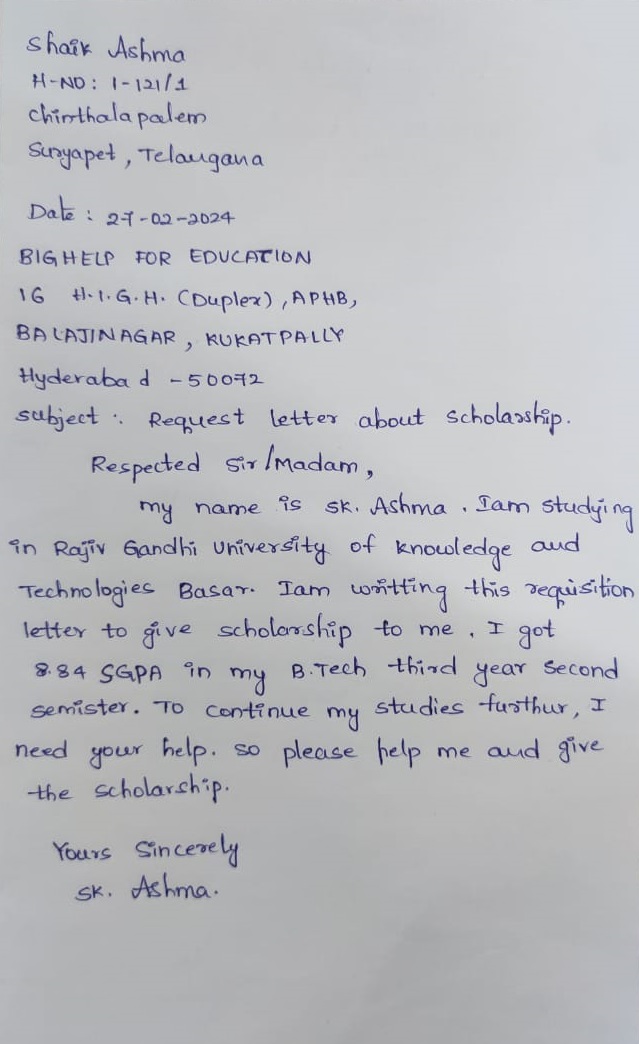 Shaik Ashma
H-NO: 1-121/1
Chinthalapalem
Suryapet, Telangana
Date: 27-02-2024
BIGHELP FOR EDUCATION
16 H.I.G.H. (Duplex), APHB,
BALAJINAGAR, KUKATPALLY
Hyderabad -50072
subject: Request letter about scholarship.
Respected Sir/Madam,
my name is SK. Ashma. Iam studying
in Rajiv Gandhi University of knowledge and
Technologies Basar. Iam writting this requisition
letter to give scholarship to me. I got
8.84 SGPA in my B.Tech third year second
semister. To continue my studies furthur, I
need your help. so please help me and give
the scholarship.
Yours Sincerely
SK. Ashma.